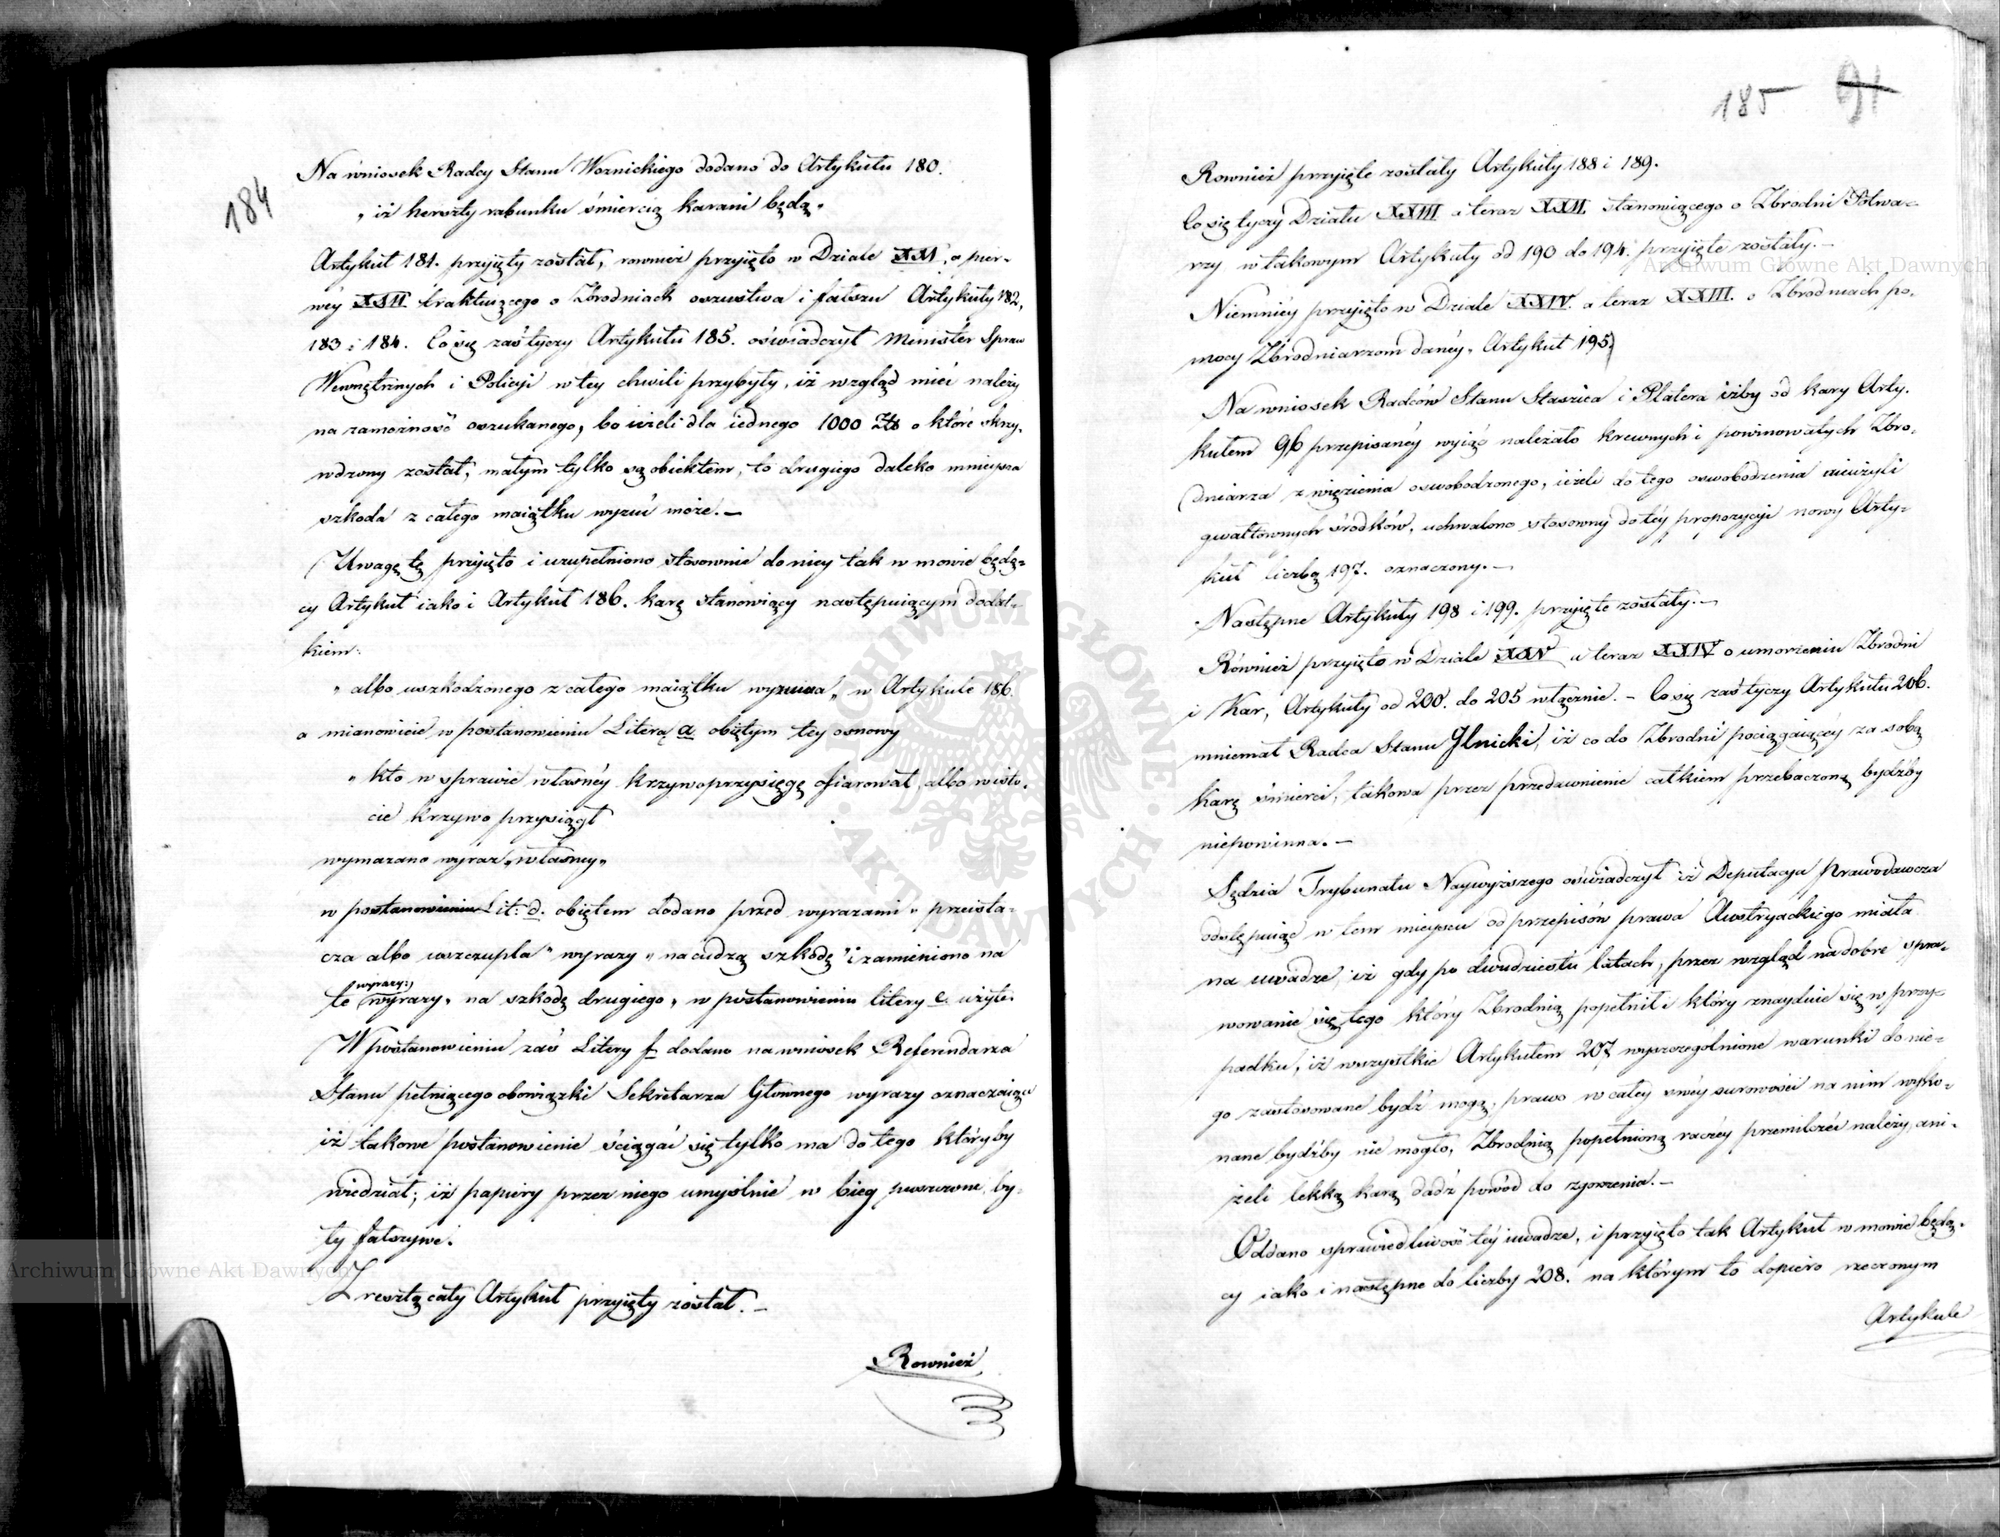 184
Na wniosek Radcy Stanu Woznickiego dodano do Artykułu 180.
„ iż herszty rabunku śmiercią karani będą„
Artykuł 181. przyięty został, rownież przyięto w Dziale XXI, a pier-
wéy XXII traktuiącego o Zbrodniach oszustwa i fałszu Artykuły 182,
183 i 184. Co się zaś tyczy Artykułu 185. oświadczył Minister Spraw
Wewnętrznych i Policyi w tey chwili przybyły, iż wzgląd mieć należy
na zamożność oszukanego, bo ieżeli dla iednego 1000 Zło o które skrzy-
wdzony został, małym tylko są obiektem, to drugiego daleko mnieysza
szkoda z całego maiątku wyzuć może. —
Uwagę tę przyięto i uzupełniono stosownie do niey tak w mowie będą-
cy Artykuł iako i Artykuł 186. karę stanowiący następuiącym dodat-
kiem:
„ albo uszkodzonego z całego maiątku wyzuwa „ w Artykule 186.
a mianowicie w postanowieniu Literą a obiętym tey osnowy
„ kto w sprawie własnéy krzywoprzysięgę ofiarował, albo w isto-
cie krzywo przysiągł
wymazano wyraz „własney„
w postanowieniu Lit: d. obiętem dodano przed wyrazami „ przeista-
cza albo uszczupla„ wyrazy „ na cudzą szkodę „ i zamieniono na
wyrazy:
te wyrazy „ na szkodę drugiego „ w postanowieniu litery c. użyte.
W postanowieniu zaś Litery f dodano na wniosek Referendarza
Stanu pełniącego obowiązki Sekretarza Głownego wyrazy oznaczaiące
iż takowe postanowienie ściągać się tylko ma do tego któryby
wiedział, iż papiery przez niego umyślnie w bieg puszczone by-
ły fałszywe.
Z resztą cały Artykuł przyięty został. —
Rownież
185 91
Rownież przyięte zostały Artykuły 188 i 189.
Co się tyczy Działu XXIII a teraz XXII stanowiącego o Zbrodni Potwa-
rzy w takowym Artykuły od 190 do 194. przyięte zostały. —
Niemniéy przyięto w Dziale XXIV. a teraz XXIII. o Zbrodniach po-
mocy Zbrodniarzom danéy, Artykuł 195.
Na wniosek Radców Stanu Staszica i Platera iżby od kary Arty-
kułem 96 przepisanéy wyiąć należało krewnych i powinowatych Zbro-
dniarza z więzienia oswobodzonego, ieżeli do tego oswobodzenia nieużyli
gwałtownych środków, uchwalono stosowny do téy propozycyi nowy Arty-
kuł liczbą 197. oznaczony. —
Następne Artykuły 198 i 199. przyięte zostały. —
Również przyięto w Dziale XXV a teraz XXIV o umorzeniu Zbrodni
i Kar, Artykuły od 200. do 205 włącznie. — Co się zaś tyczy Artykułu 206.
mniemał Radca Stanu Jlnicki, iż co do Zbrodni pociągaiącéy za sobą
karę śmierci, takowa przez przedawnienie całkiem przebaczoną bydźby
niepowinna. —
Sędzia Trybunału Naywyższego oświadczył iż Deputacya Prawodawcza
odstępuiąc w tem mieyscu od przepisów prawa Austryackiego miała
na uwadze, iż gdy po dwudziestu latach, przez wzgląd na dobre spra-
wowanie się tego który Zbrodnią popełnił i który znayduie się w przy-
padku, iż wszystkie Artykułem 207 wyszczególnione warunki do nie-
go zastosowane bydź mogą, prawo w całey swéy surowości na nim wyko-
nane bydźby nie mogło, Zbrodnią popełnioną raczéy przemilczéć należy, ani-
żeli lekką karą dadź powód do zgorszenia. —
Oddano sprawiedliwość téy uwadze, i przyięto tak Artykuł w mowie będą-
cy iako i następne do liczby 208. na którym to dopiero rzeczonym
Artykule
Archiwum Główne Akt Dawnych
Archiwum Główne Akt Dawnych
ARCHIWUM GŁÓWNE · AKT DAWNYCH ·